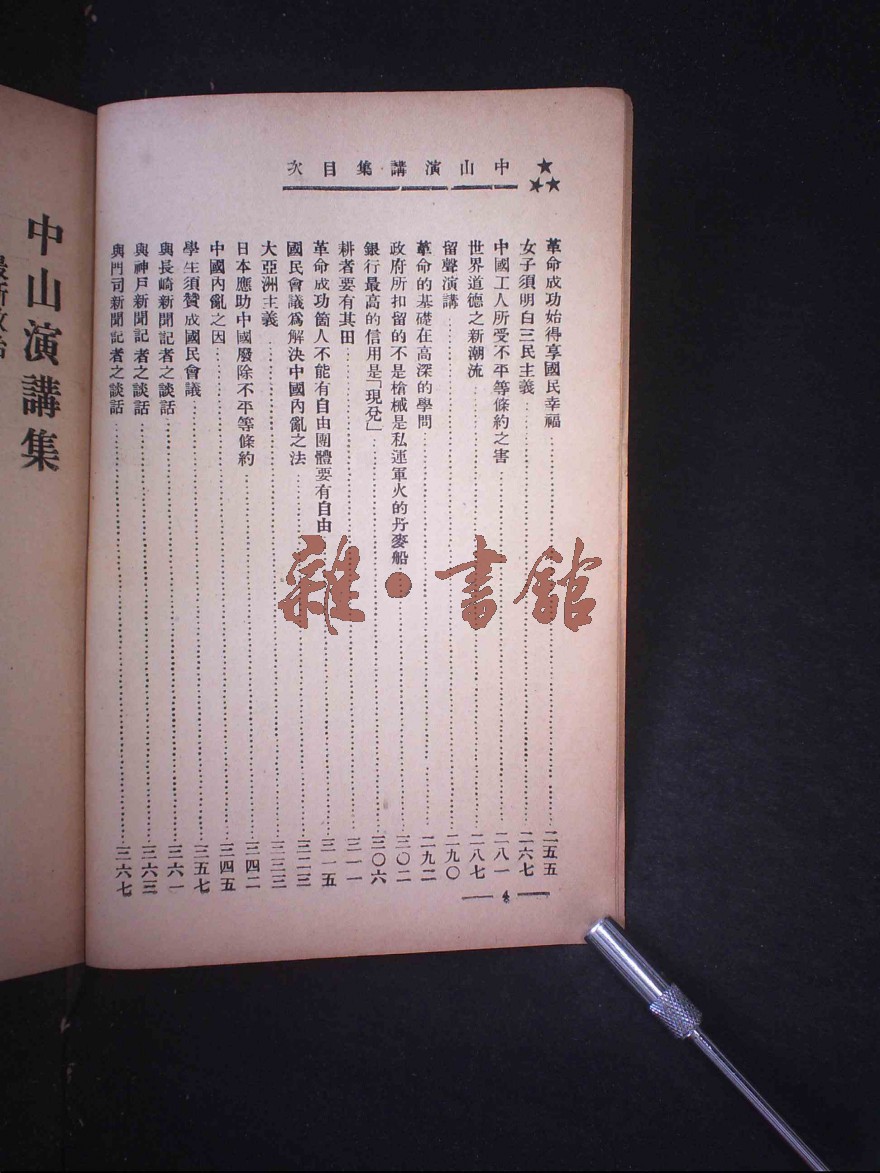 中山演講集目次
革命成功始得享國民幸福 二五五
女子須明白三民主義 二六七
中國工人所受不平等條約之害 二八一
世界道德之新潮流 二八七
留聲演講 二九〇
革命的基礎在高深的學問 二九二
政府所扣留的不是槍械是私運軍火的丹麥船 三〇二
銀行最高的信用是「現兌」 三〇六
耕者要有其田 三一一
革命成功箇人不能有自由團體要有自由 三一五
國民會議爲解決中國內亂之法 三二三
大亞洲主義 三三三
日本應助中國廢除不平等條約 三四二
中國內亂之因 三四五
學生須贊成國民會議 三五七
與長崎新聞記者之談話 三六一
與神戸新聞記者之談話 三六三
與門司新聞記者之談話 三六七
4
中山演講集
雜·書館